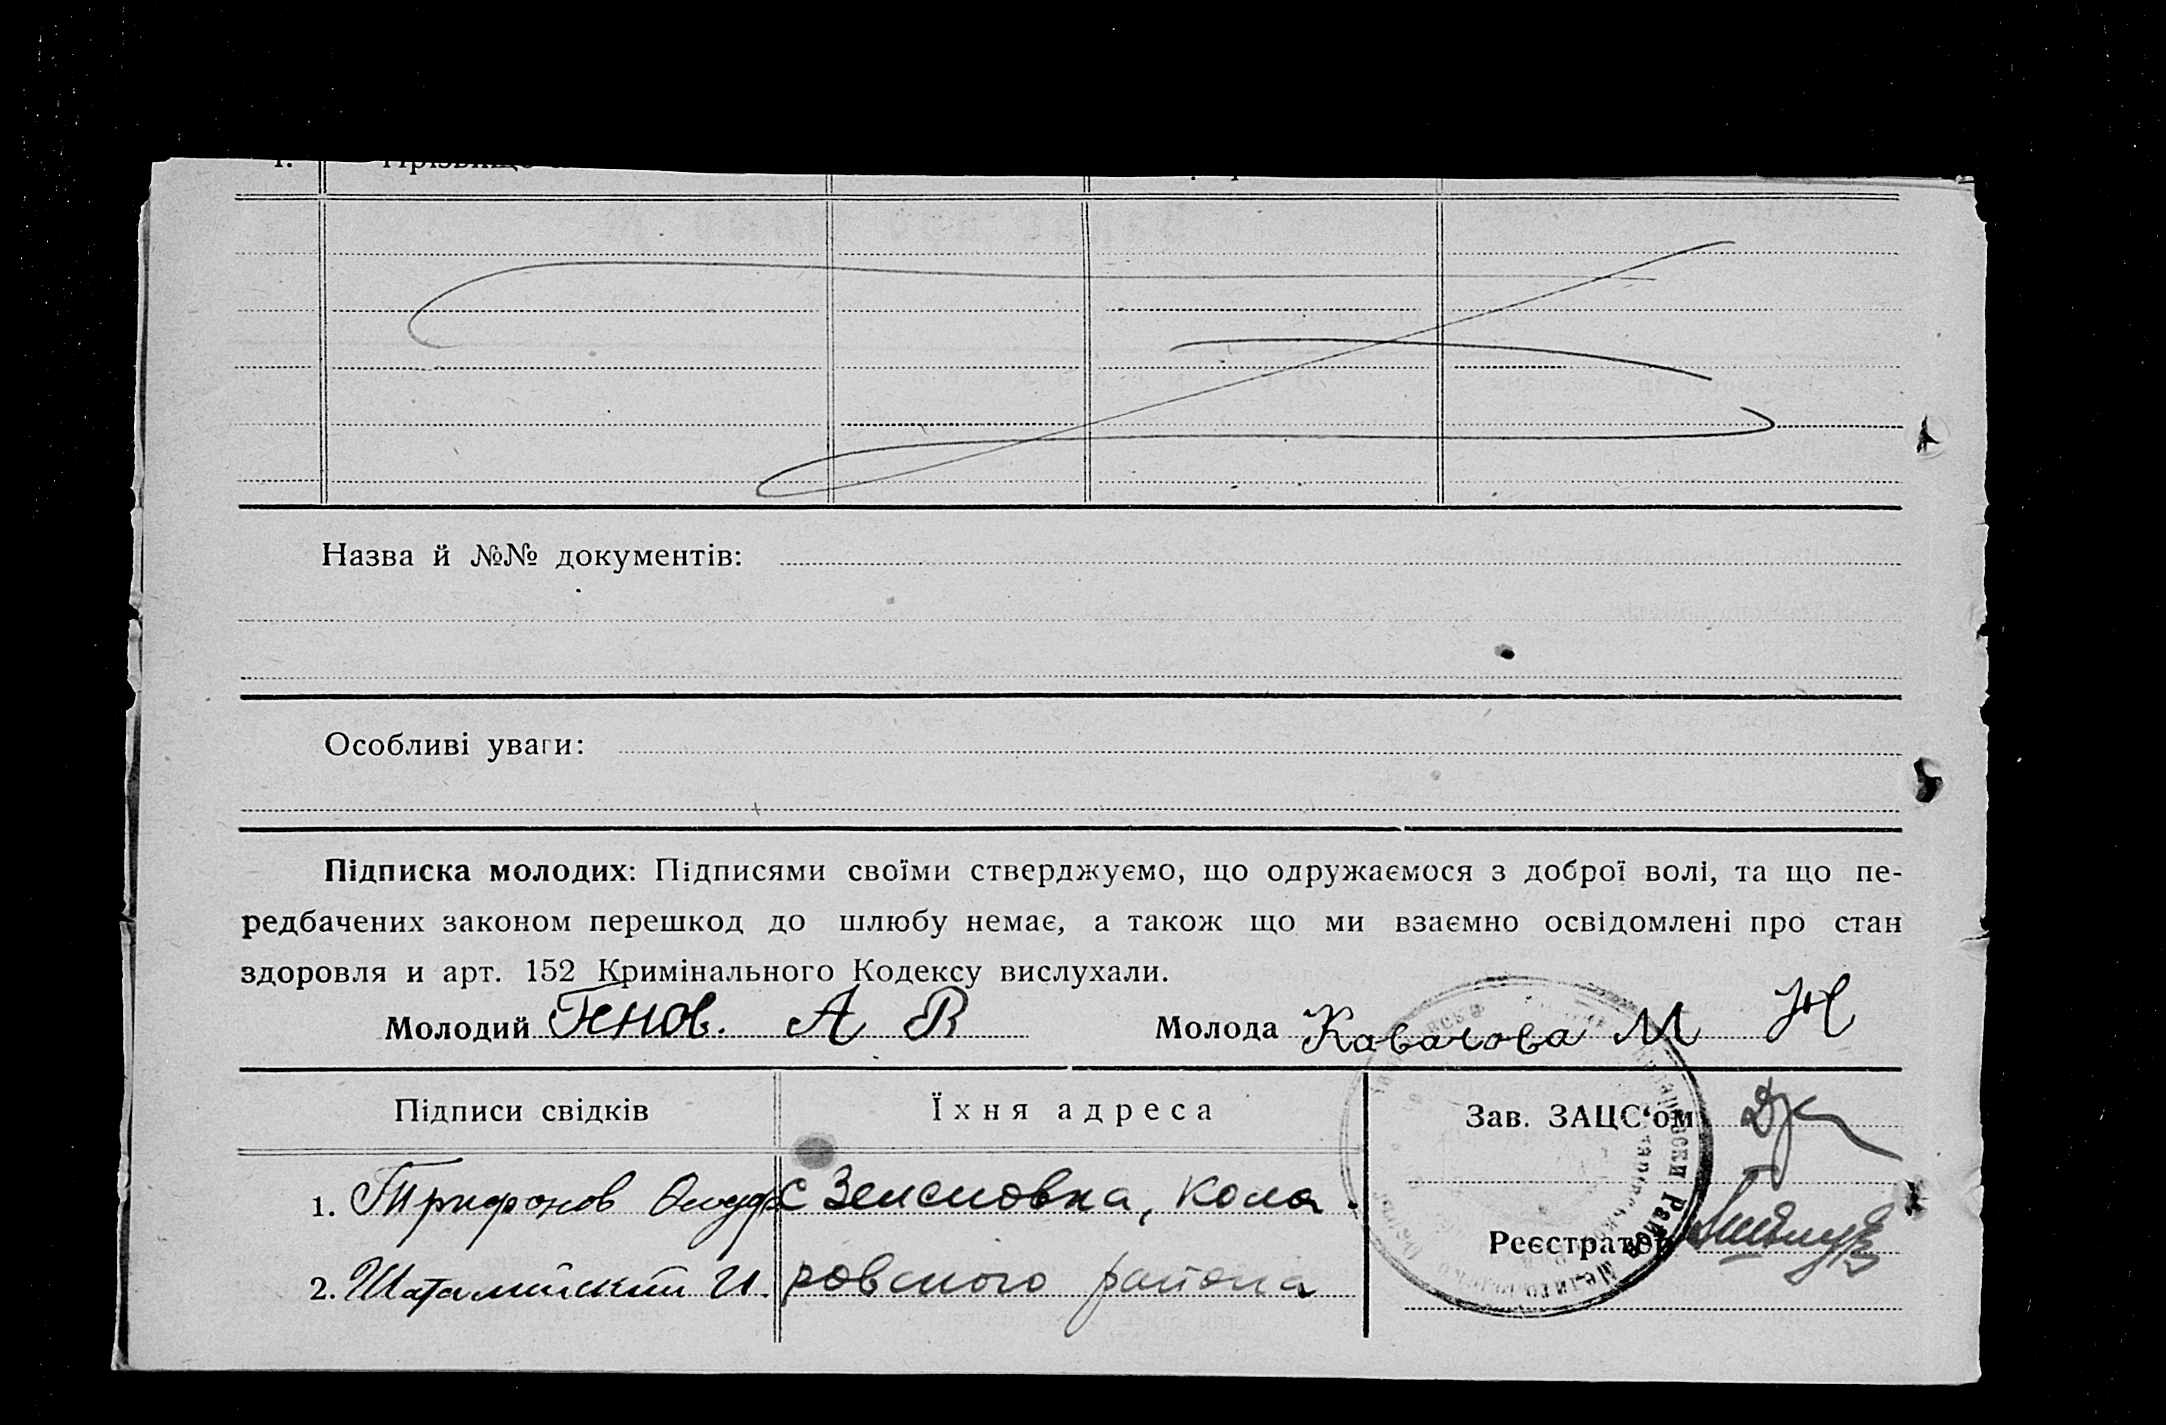 Назва й №№ документів:
Особливі уваги:
Підписка молодих: Підписями своїми стверджуємо, що одружаємося з доброї волі, та що пе-
редбачених законом перешкод до шлюбу немає, а також що ми взаємно освідомлені про стан
здоровля и арт. 152 Кримінального Кодексу вислухали.
Молодий Генов. А В Молода М Н
Підписи свідків Їхня адреса Зав. ЗАЦС‘ом
1. Трифонов с Зеленовка, кола
Реєстратор
2. И. ровского района